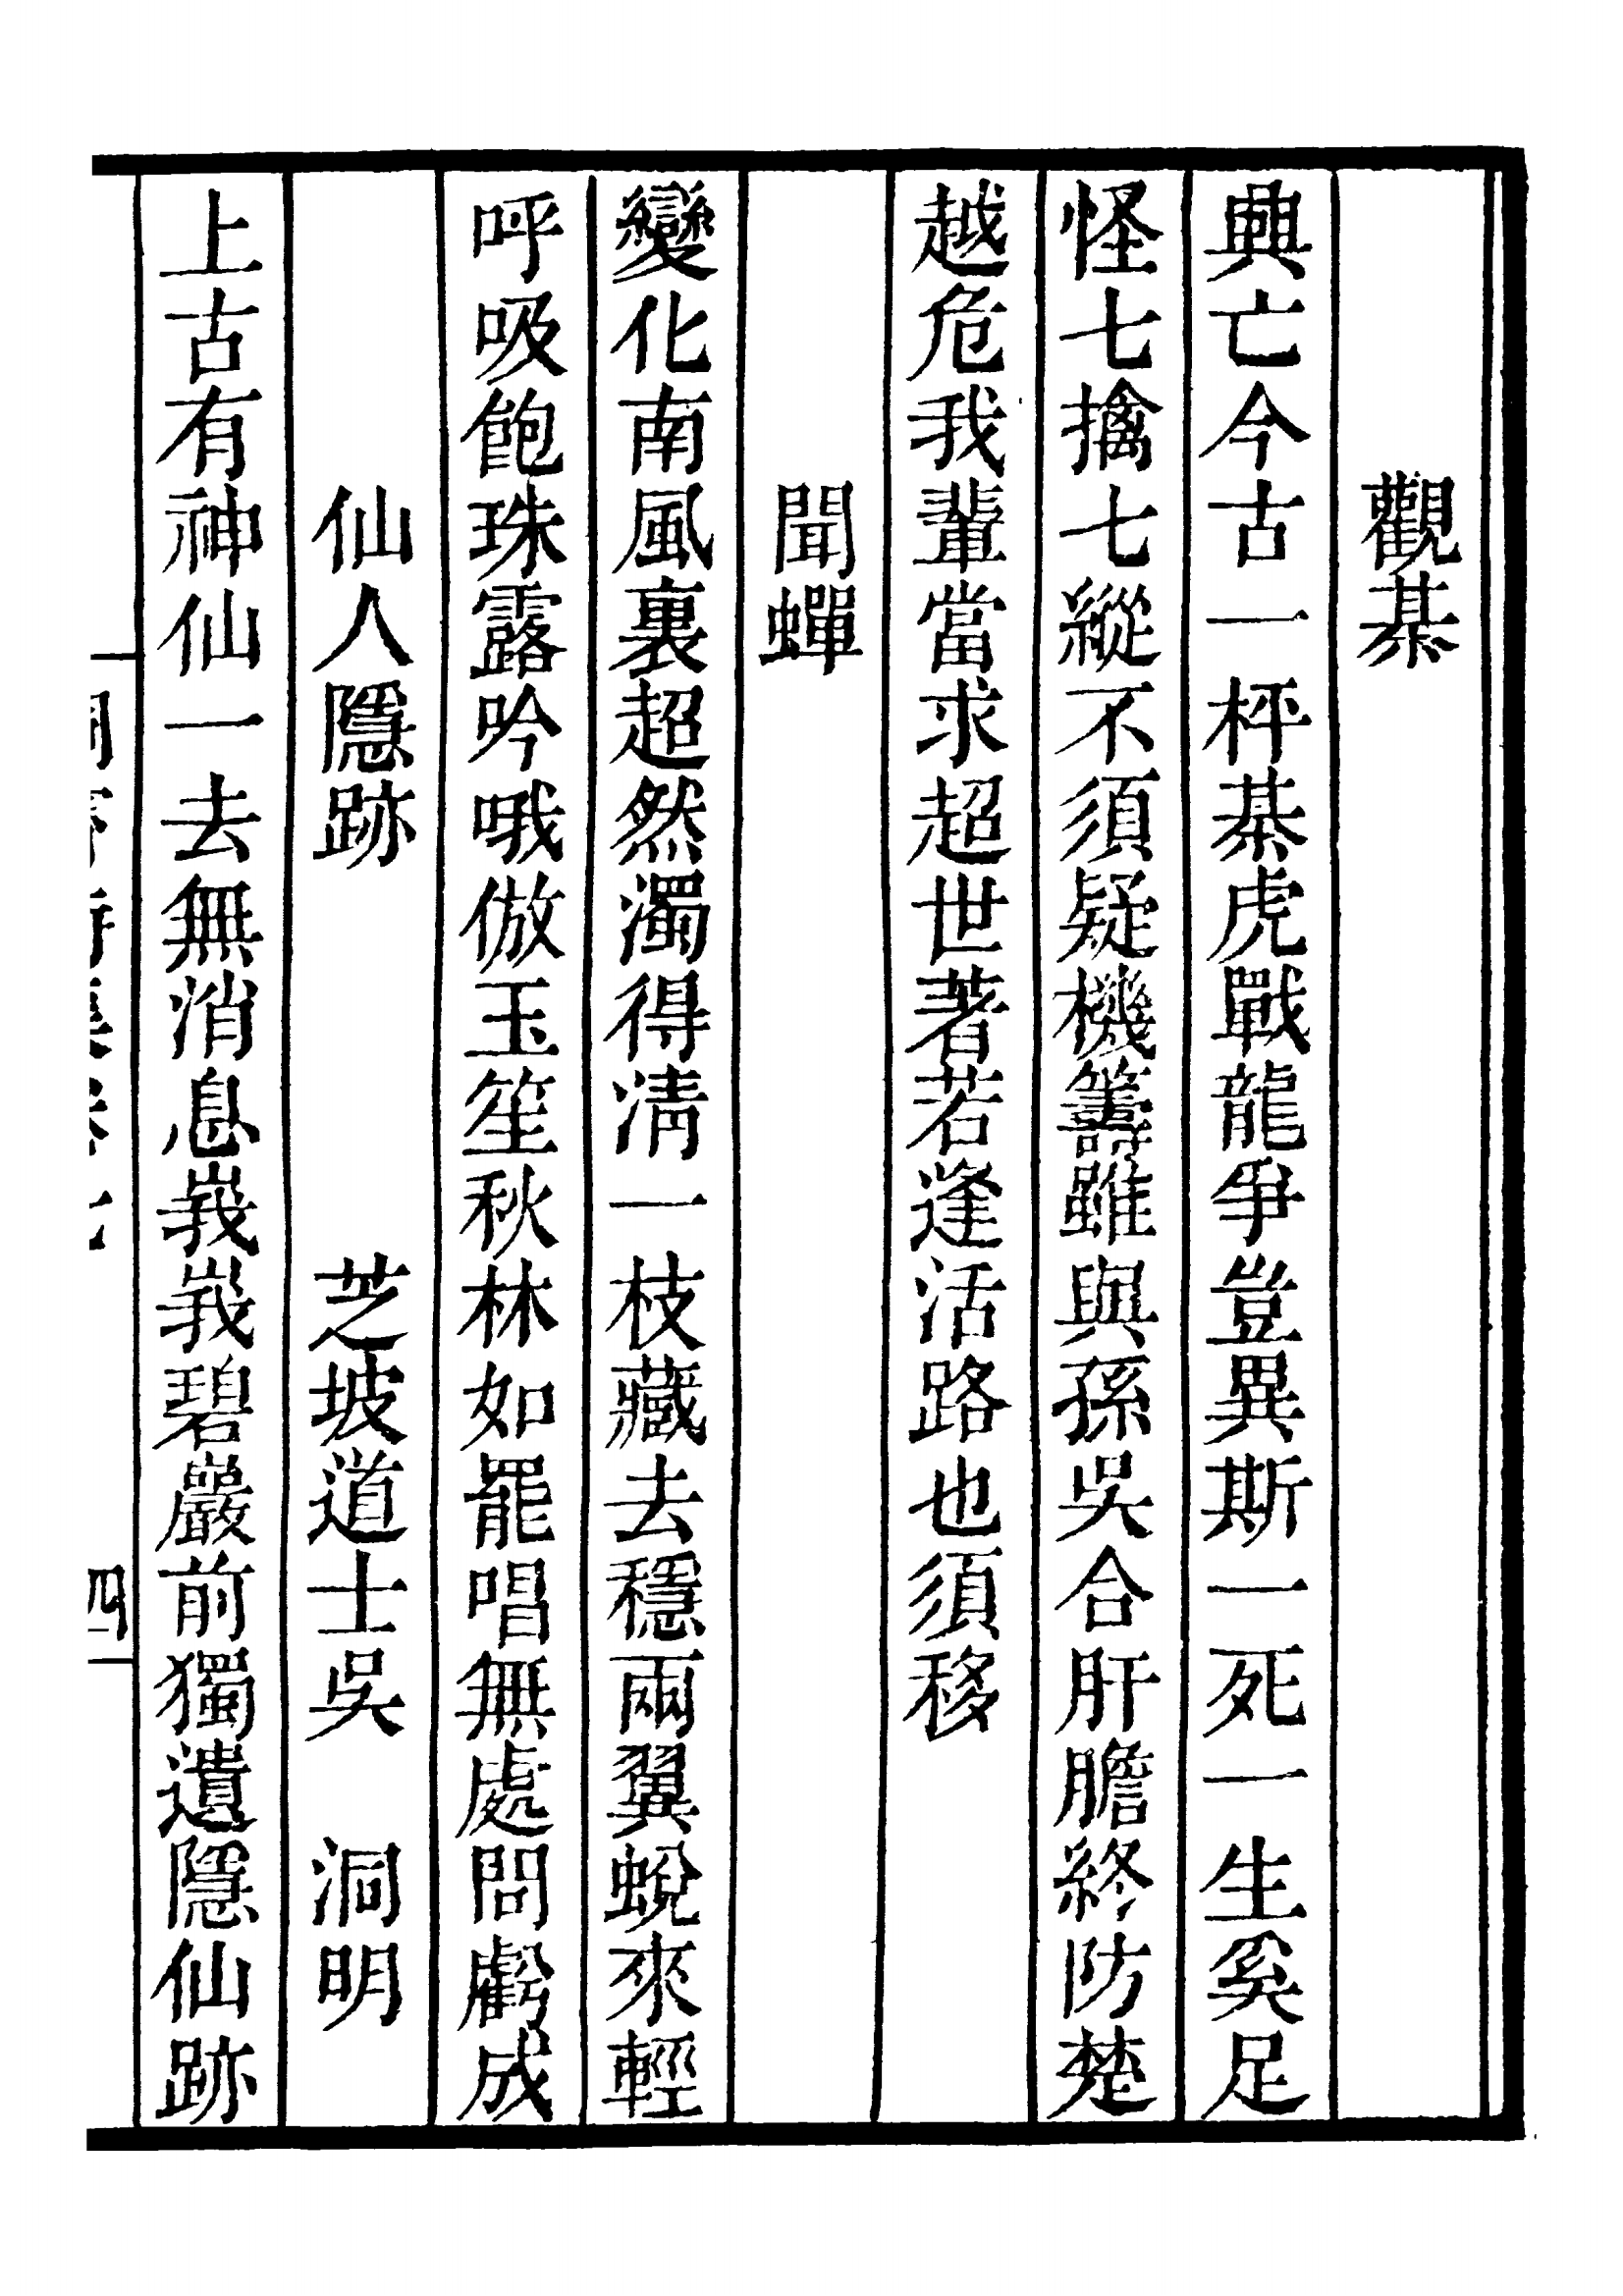 觀棊
興亡今古一枰棊虎戰龍爭豈異斯一死一生奚足
怪七擒七縱不須疑機籌雖與孫吳合肝膽終防楚
越危我輩當求超世著若逢活路也須移
聞蟬
變化南風裏超然濁得淸一枝藏去穩兩翼蛻來輕
呼吸飽珠露吟哦倣玉笙秋林如罷唱無處問虧成
仙人隱跡 芝坡道士吳 洞明
上古有神仙一去無消息峩峩碧巖前獨遺隱仙跡
四